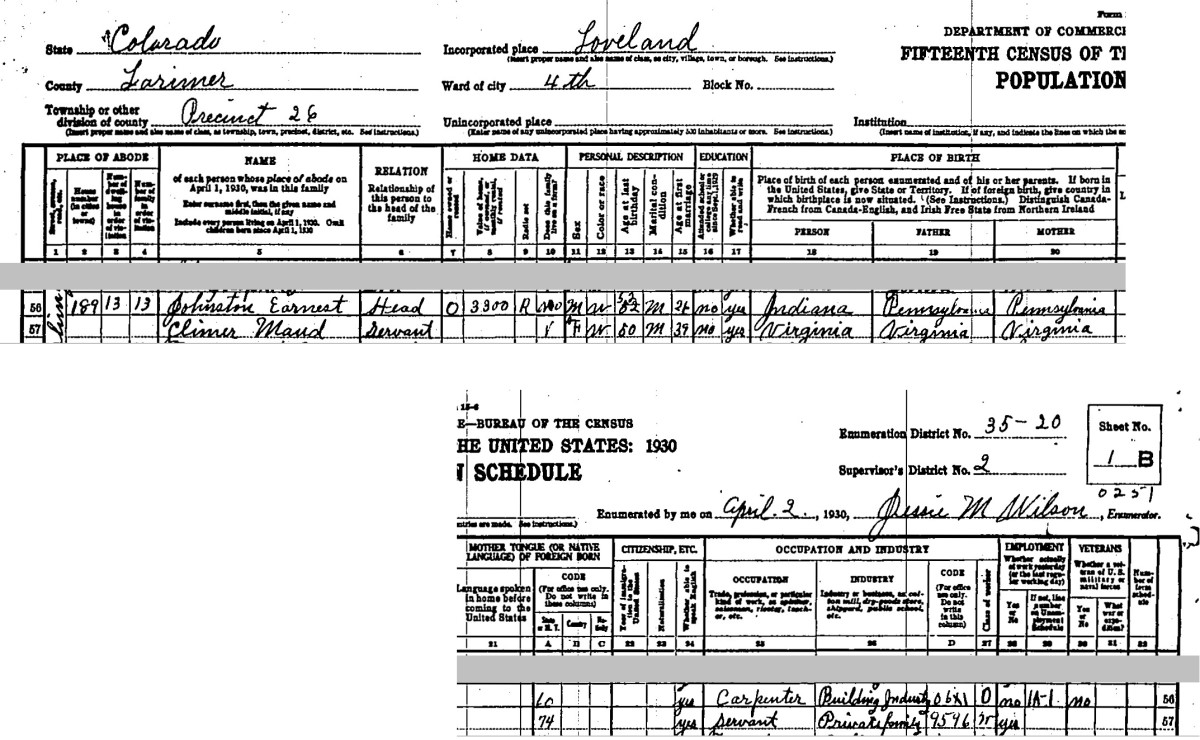 Form
State Colorado
Incorporated place Loveland
(Insert proper name and also name of class, as city, village, town, or borough. See instructions.)
DEPARTMENT OF COMMERC
FIFTEENTH CENSUS OF T
POPULATION
County Larimer
Ward of city 4th Block No.
Township or other division of county Precinct 26
(Insert proper name and also name of class, as township, town, precinct, district, etc. See instructions.)
Unincorporated place
(Enter name of any unincorporated place having approximately 500 inhabitants or more. See instructions.)
Institution
(Insert name of institution, if any, and indicate the lines on which the en
PLACE OF ABODE
NAME
of each person whose place of abode on April 1, 1930, was in this family
Enter surname first, then the given name and middle initial, if any
Include every person living on April 1, 1930. Omit children born since April 1, 1930
RELATION
Relationship of this person to the head of the family
HOME DATA
Home owned or rented
Value of home, if owned, or monthly rental, if rented
Radio set
Does this family live on a farm?
PERSONAL DESCRIPTION
Sex
Color or race
Age at last birthday
Marital condition
Age at first marriage
EDUCATION
Attended school or college any time since Sept. 1, 1929
Whether able to read and write
PLACE OF BIRTH
Place of birth of each person enumerated and of his or her parents. If born in the United States, give State or Territory. If of foreign birth, give country in which birthplace is now situated. (See Instructions.) Distinguish Canada-French from Canada-English, and Irish Free State from Northern Ireland
PERSON FATHER MOTHER
1 2 3 4 5 6 7 8 9 10 11 12 13 14 15 16 17 18 19 20
56 189 13 13 Johnston Earnest Head O 3300 R no M W 52 M 26 no yes Indiana Pennsylvania Pennsylvania 
57 Climer Maud Servant F W 50 M 37 no yes Virginia Virginia Virginia
15-6
E—BUREAU OF THE CENSUS
HE UNITED STATES: 1930
N SCHEDULE
Enumeration District No. 35-20
Supervisor's District No. 2
Sheet No.
1 B
0251
entries are made. See instructions.)
Enumerated by me on April 2, 1930, Jessie M Wilson, Enumerator.
MOTHER TONGUE (OR NATIVE LANGUAGE) OF FOREIGN BORN
Language spoken in home before coming to the United States
CODE
(For office use only. Do not write in these columns)
State or M. T. Country Nativity
CITIZENSHIP, ETC.
Year of immigration to the United States
Naturalization
Whether able to speak English
OCCUPATION AND INDUSTRY
OCCUPATION
Trade, profession, or particular kind of work, as spinner, salesman, riveter, teacher, etc.
INDUSTRY
Industry or business, as cotton mill, dry-goods store, shipyard, public school, etc.
CODE
(For office use only. Do not write in this column)
Class of worker
EMPLOYMENT
Whether actually at work yesterday (or the last regular working day)
Yes or No
If not, line number on Unemployment Schedule
VETERANS
Whether a veteran of U. S. military or naval forces
Yes or No
What war or expedition?
Number of farm schedule
21 A B C 22 23 24 25 26 D 27 28 29 30 31 32
60 yes Carpenter Building Industry O no 1A-1 no 56
74 yes Servant Private family 9596 yes 57